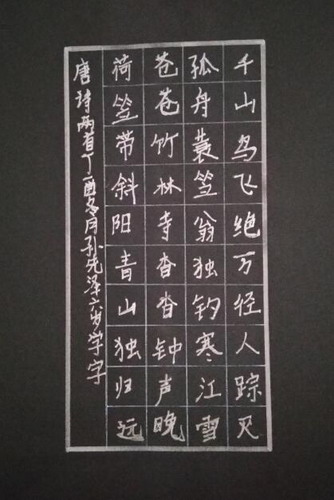 千山鸟飞绝万径人踪灭
孤舟蓑笠翁独钓寒江雪
苍苍竹林寺杳杳钟声晚
荷笠带斜阳青山独归远
唐诗两首丁酉冬月孙先泽六岁学字